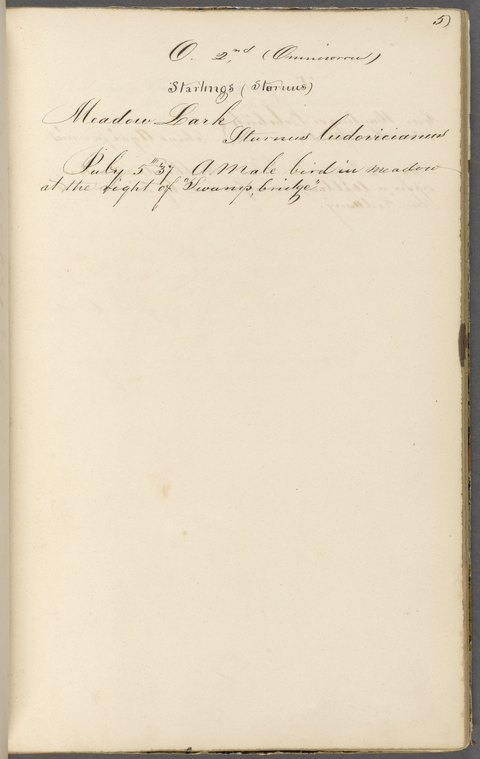 5)
O. 2,nd (Omnivorœ)
Starlings (Sturnus)
Meadow Lark
Sturnus ludovicianus
July 5th 37 A Male bird in meadow
at the right of "Swamp, bridge"